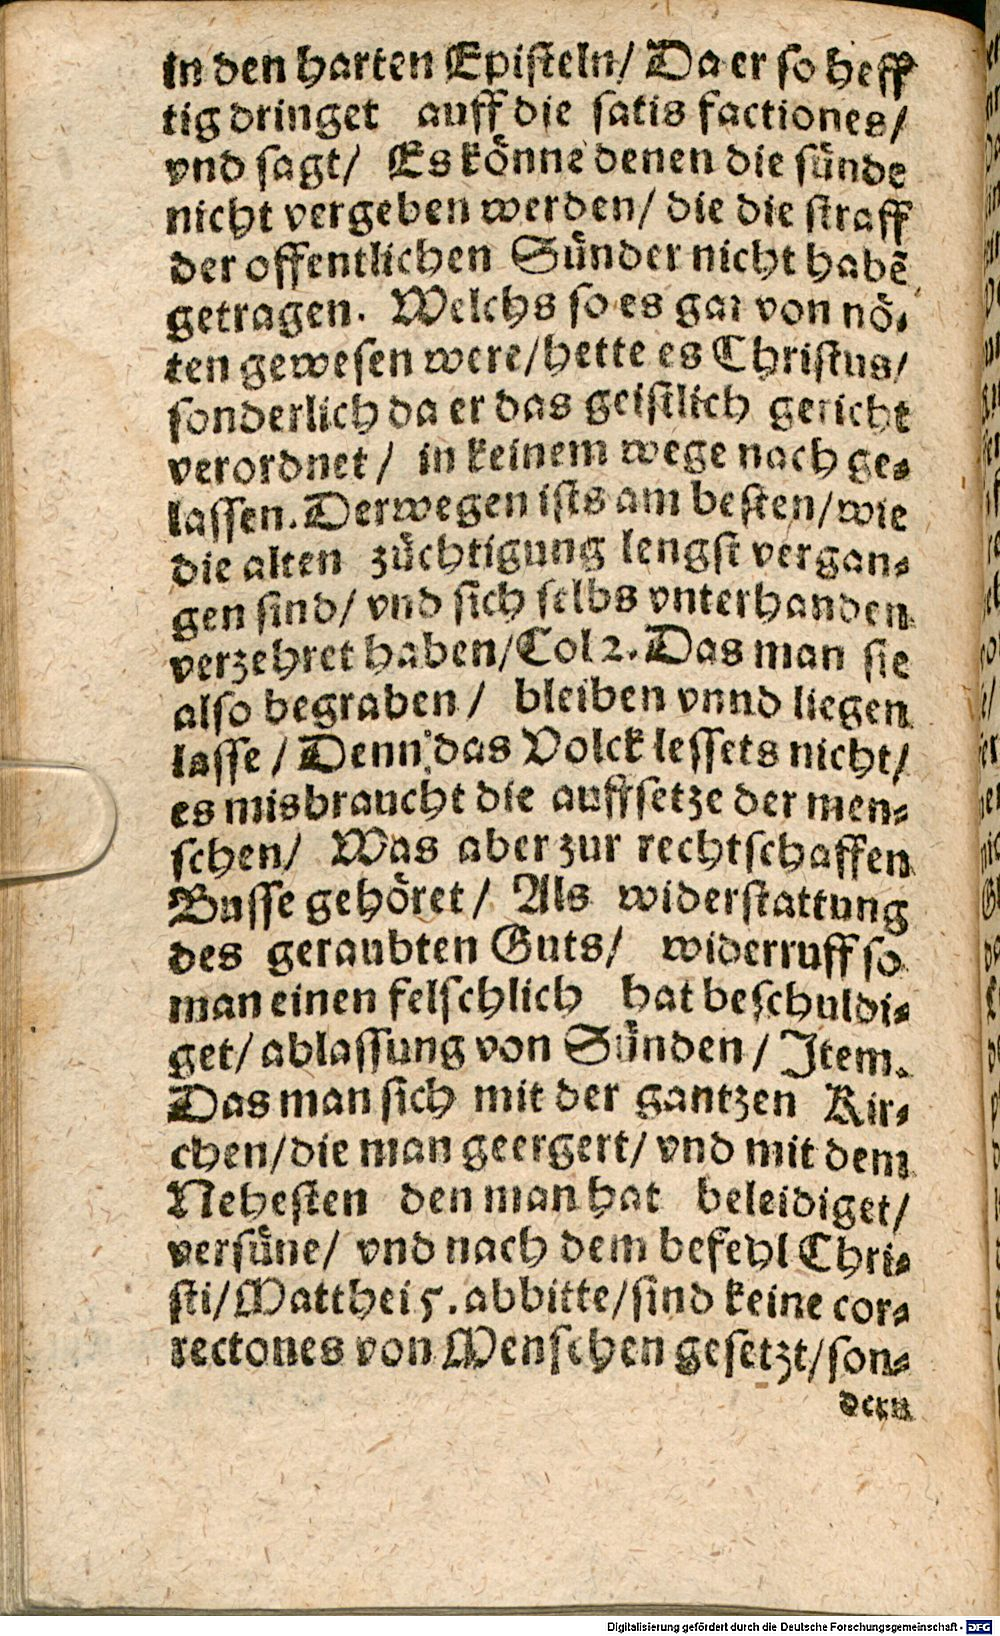 in den harten Episteln/ Da er so heff
tig dringet auff die satis factiones/
vnd sagt/ Es könne denen die sünde
nicht vergeben werden/ die die straff
der offentlichen Sünder nicht habẽ
getragen. Welchs so es gar von nö-
ten gewesen were/hette es Christus/
sonderlich da er das geistlich gericht
verordnet/ in keinem wege nach ge-
lassen. Derwegen ists am besten/wie
die alten züchtigung lengst vergan-
gen sind/ vnd sich selbs vnterhanden
verzehret haben/Col 2. Das man sie
also begraben/ bleiben vnnd liegen
lasse/ Denn das Volck lessets nicht/
es misbraucht die auffsetze der men-
schen/ Was aber zur rechtschaffen
Busse gehöret/ Als widerstattung
des geraubten Guts/ widerruff so
man einen felschlich hat beschuldi-
get/ ablassung von Sünden/ Item.
Das man sich mit der gantzen Kir-
chen/die man geergert/ vnd mit dem
Nehesten den man hat beleidiget/
versüne/ vnd nach dem befehl Chri-
sti/Matthei 5. abbitte/sind keine cor-
rectones von Menschen gesetzt/son-
dern
Digitalisierung gefördert durch die Deutsche Forschungsgemeinschaft - DFG